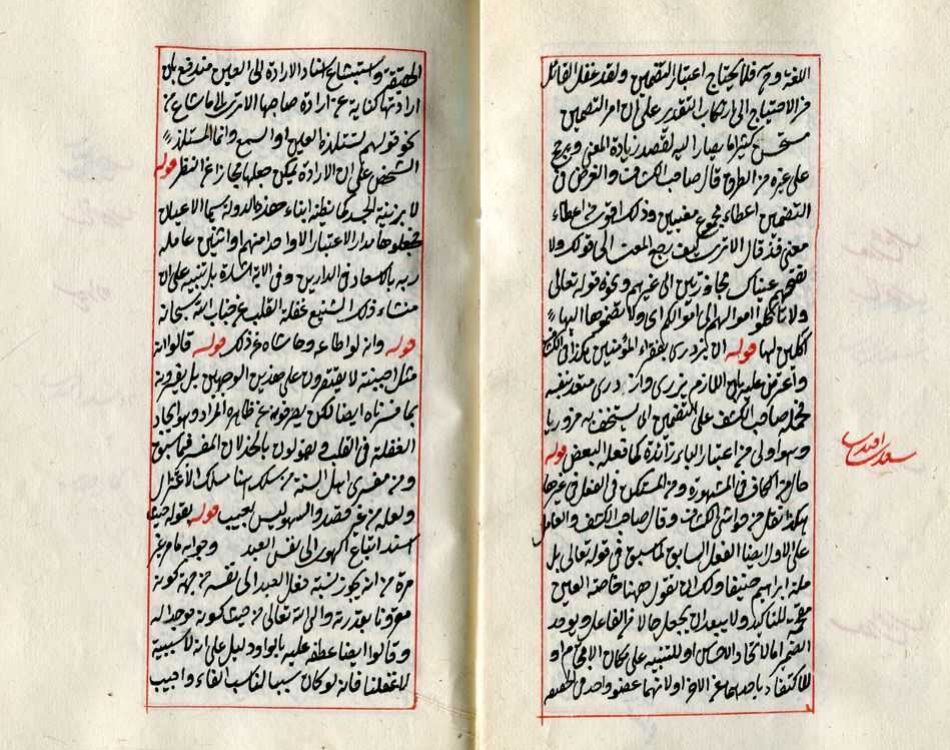 اللغة وح فلا يحتاج اعتبار التضمين ولقد غفل القائل
من الاحتياج الى ارتكاب التقدير على ان امر التضمين
مستحسن كثيرا ما يصار اليه لقصد زيادة المعنى ويرجح
على غيره من الطرق قال صاحب الكشاف والغرض في
التضمين اعطاء مجموع معنيين وذلك اقوى من اعطاء
معنى فذ قال الا ترى كيف رجع المعنى الى قولك ولا
تقتحم عيناك مجاوزتين الى غيرهم ونحوه قوله تعالى
ولا تأكلوا اموالهم الى اموالكم اى ولا تضموها اليها
آكلين لها قوله ان يزدرى بفقراء المؤمنين هكذا في الكشاف
واعترض عليه بان اللازم يزرى وازدرى متعد بنفسه
فحمله صاحب الكشف على التضمين اى يستخف به مزدريا
وهو اولى من اعتبار الباء زائدة كما فعله البعض قوله
حال من الكاف في المشهورة ومن المستكن في الفعل في غيرها
هكذا نقل من حواشى الكشاف وقال صاحب الكشف والعامل
على الاول ايضا الفعل السابق كما سبق في قوله تعالى بل
ملة ابراهيم حنيفا ولك ان تقول ههنا خاصة العين
مقحمة للتأكيد ولا يبعد ان يجعل حالا من الفاعل وتوحيد
الضمير اما لاتحاد الاحساس او للتنبيه على مكان الاقحام او
للاكتفاء باحدهما عن الاخر او لانهما عضو واحد في الحقيقة
سعدى افندى
الحقيقة واستبشاع اسناد الارادة الى العين مندفع بان
ارادتها كناية عن ارادة صاحبها الا ترى الى ما شاع من
نحو قولهم تستلذه العين او السمع وانما المستلذ
الشخص على ان الارادة يمكن جعلها مجازا عن النظر قوله
لا بزينة الجسد كما يظنه ابناء هذه الدولة سيما الاعيان
فجعلوها مدار الاعتبار الا واحد منهم او اثنين عامله
ربه بالاسعاد في الدارين وفي الاية اشارة بل تنبيه على ان
منشاء ذلك الشنيع غفلة القلب عن جناب الله سبحانه
قوله وانه لو اطاعه وحاشاه عن ذلك قوله قالوا انه
مثل اجبنته لا يقتصرون على هذين الوجهين بل يقرونه
بما فسرناه ايضا لكن يصرفونه عن ظاهره المراد وهو ايجاد
الغفلة في القلب ويؤولون بالخذلان المفسر فيما سبق
ومن مفسرى اهل السنة من سلك هنا مسلك الاعتزال
ولعله من غير قصد والسهو ليس بعجيب قوله بقوله حيث
اسند اتباع الهوى الى نفس العبد وجوابه ما مر غير
مرة من انه يجوز نسبة فعل العبد الى نفسه من جهة كونه
مقرونا بقدرته والى الله تعالى من حيث كونه موجدا له
وقالوا ايضا عطفه عليه بالواو دليل على انه لا سببية
لاغفلنا فانه لو كان سببا لناسب الفاء واجيب